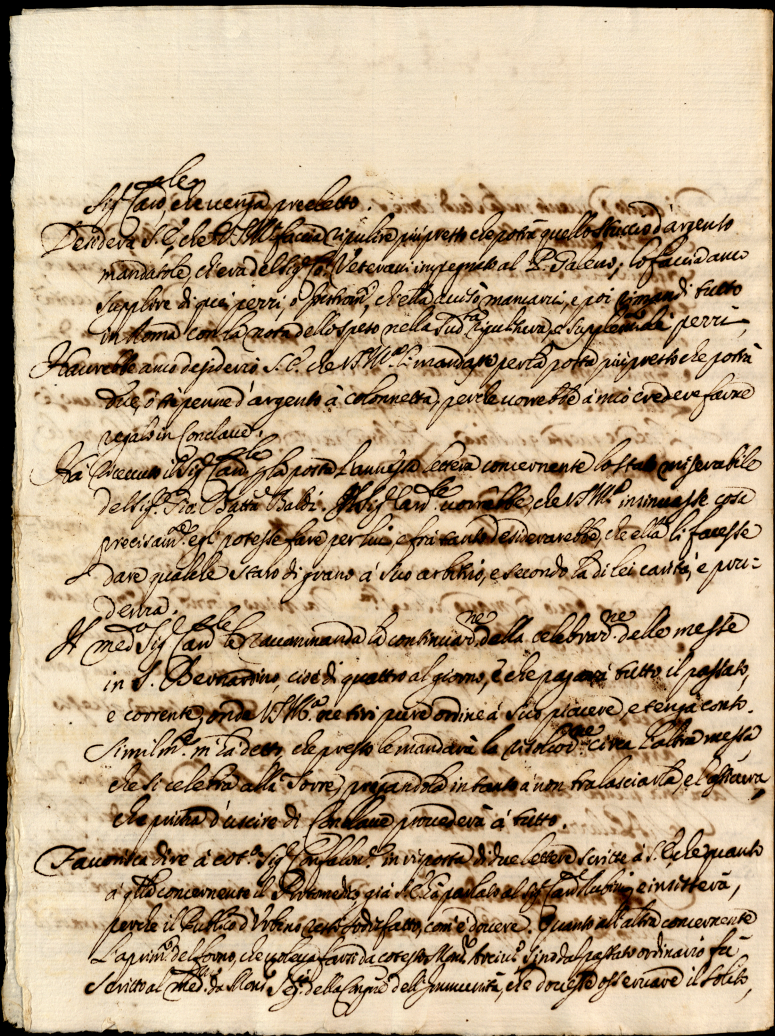 Sig.r Card.le che venga predetto.
Desidera S. E. che V.S. Ill.ma faccia ripulire più presto che potrà quello stuccio d'argento
mandatole, che era del Sig.r Co. Veterani impegnato al P. Galeno, lo faccia anco
supplire di quei pezzi, o che ella avvisò mancarvi, e poi rimandi tutto
in Roma con la nota dello speso nella sud.ta ripulitura, e pezzi,
Haurebbe anco desiderio S. E. che V.S. Ill.ma li mandasse per la posta più presto che potrà
due, o tre penne d'argento à colonnetta, perche vorrebbe à mio credere farne
regalo in Conclave.
Hà ricevuto il Sig.r Card.le la posta lettera concernente lo stato miserabile
del Sig.r Gio. Batta Baldi. Il Sig.r Card.le vorrebbe, che V.S. Ill.ma insinuasse cosa
precisam.te egli potesse fare per lui, e frà tanto desiderarebbe, che ella li facesse
dare qualche staro di grano à suo arbitrio, e secondo la di lei carità, e pru-
denza.
Il med.o Sig.r Card.le le raccommanda la continuaz.ne della celebraz.ne delle messe
in S. Bernardino, cioè di quattro al giorno, e che pagarà tutto il passato,
e corrente, onde V.S. Ill.ma ne tiri pure ordine à suo piacere, e tenga conto.
Similm.te m'hà detto, che presto le mandarà la risoluz.ne circa l'altra messa,
che si celebra alla Torre, pregandola in tanto à non tralasciarla, e l'assicura,
che prima d'uscire di Conclave provederà à tutto.
Favorisca dire à cot.o Sig.r Confalon.re in risposta di due lettere scritte à S. E., che quanto
à q.lla concernente il Protomedico già S. E. hà parlato al Sig.r Card.le e insisterà,
perche il Publico d'Urbino resti sodisfatto, com'è dovere. Quanto all'altra concernente
del forno, che voleva farsi da cotesto Mons.r Arciv.o sino dal passato ordinario fù
scritto al med.o da Mons.r Seg.rio della Congreg.ne dell'Immunità, che dovesse osservare il solito,